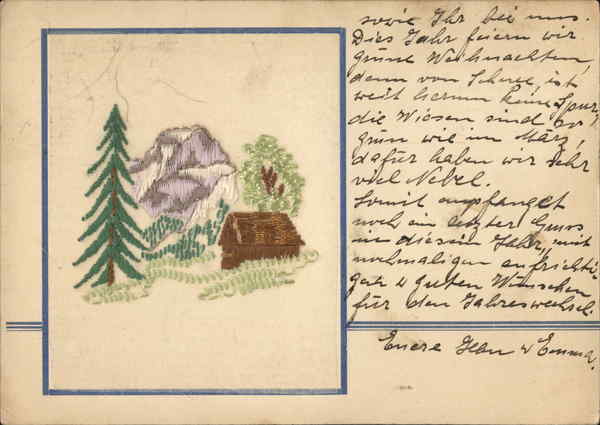 sowie Ihr bei uns.
Dies Jahr feiern wir
grüne Weihnachten,
denn von Schnee ist
weit herum keine Spur,
die Wiesen sind so
grün wie im März,
dafür haben wir sehr
viel Nebel.
Somit empfanget
noch ein letzter Gruss
in diesem Jahr, mit
nochmaligen aufrichti-
gen u guten Wünschen
für den Jahreswechsel.
Euere u Emma.